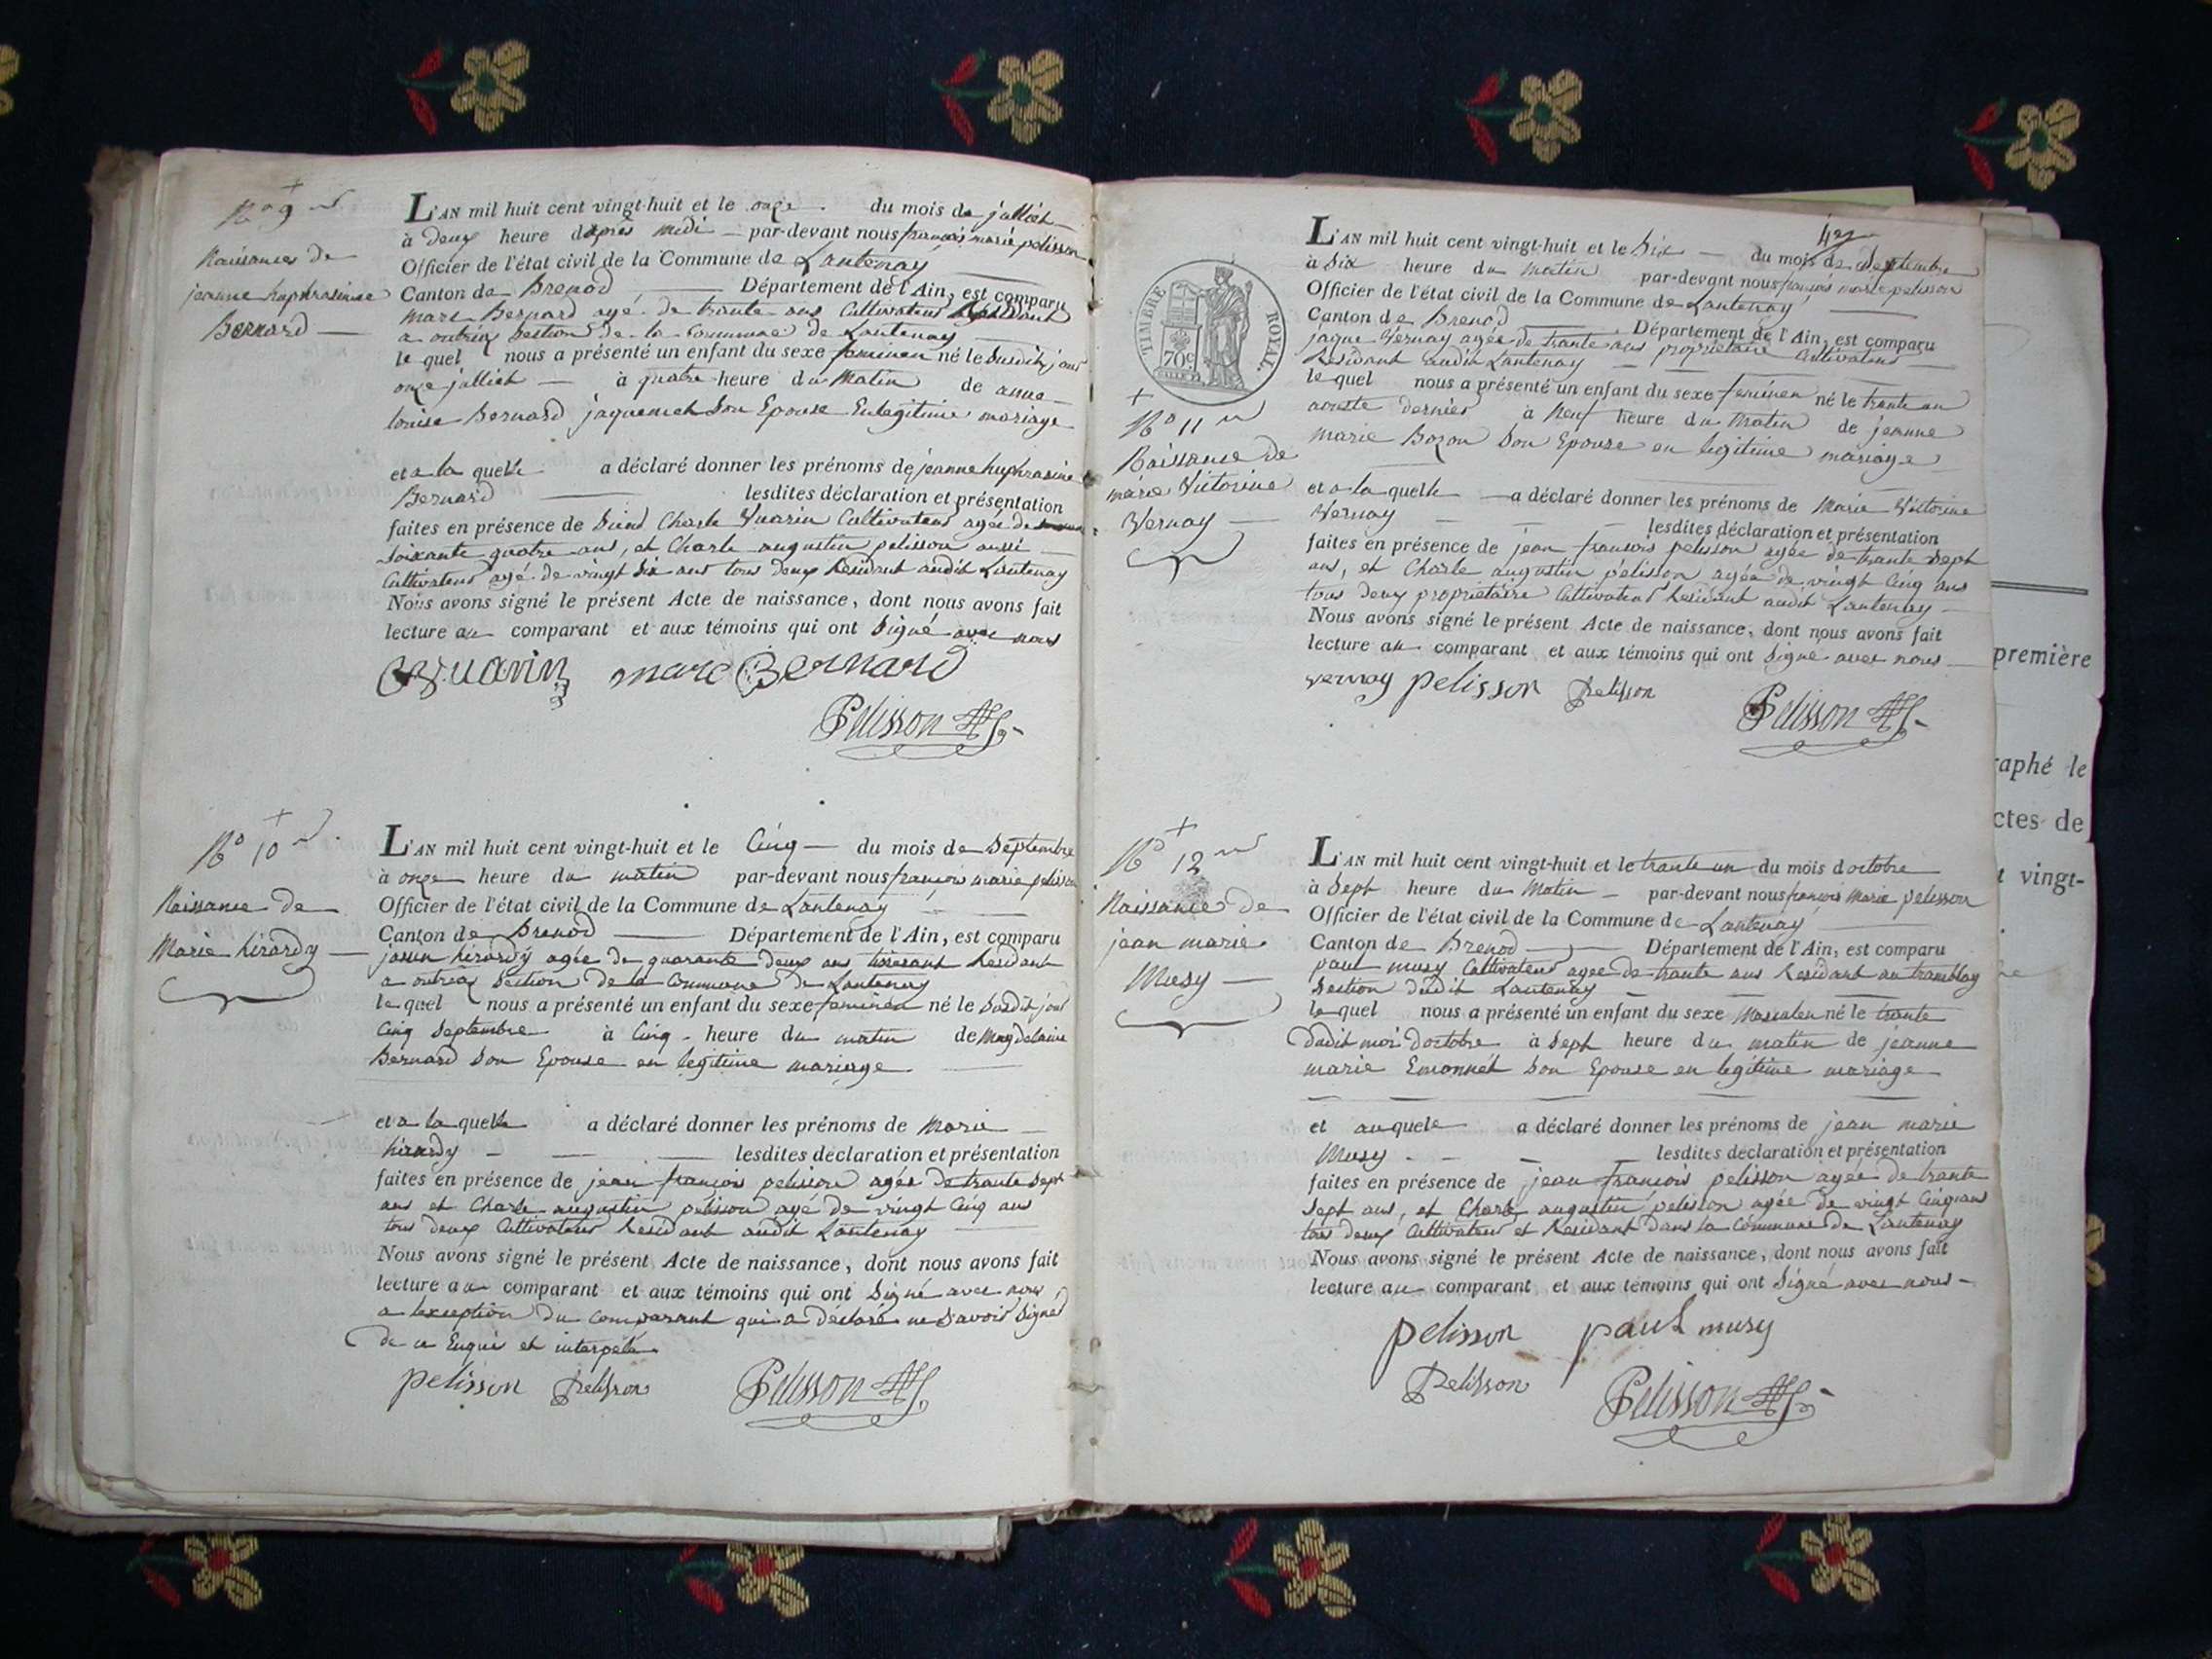 No 9
Naissances de
jeanne huphrasine
Bernard
L'AN mil huit cent vingt-huit et le onze du mois de julliet
à deux heure daprès midi par-devant nous francois marie pelisson
Officier de l'état civil de la Commune de Lantenay
Canton de Brenod Département de l'Ain, est comparu
marc Bernard agé de trante ans Cultivateur Residant
a outriaz Section de la Commune de Lantenay
le quel nous a présenté un enfant du sexe feminen né le Susdit jour
onze julliet à quatre heure du Matin de anne
louise Bernard jaquemet Son Epouse En legitime mariage
et a la quelle a déclaré donner les prénoms de jeanne huphrasine
Bernard lesdites déclaration et présentation
faites en présence de Charle Vuarin Cultivateur agée de
Soixante quatre ans, et Charle augustin pelisson aussi
Cultivateur agé de vingt Six ans tous deux Residant audit Lantenay
Nous avons signé le présent Acte de naissance, dont nous avons fait
lecture au comparant et aux témoins qui ont Signé avec nous
Vuarin marc Bernard
Pelisson
No 10
Naissance de
Marie hirardy
L'AN mil huit cent vingt-huit et le Cinq du mois de Septembre
à onze heure du matin par-devant nous francois marie pelisson
Officier de l'état civil de la Commune de Lantenay
Canton de Brenod Département de l'Ain, est comparu
hirardy agée de quarante deux ans tisserant Residant
a outriaz Section de la Commune de Lantenay
le quel nous a présenté un enfant du sexe feminen né le Susdit jour
Cinq Septembre à Cinq heure du matin de Magdelaine
Bernard Son Epouse en legitime mariage
et a la quelle a déclaré donner les prénoms de Marie
hirardy lesdites déclaration et présentation
faites en présence de jean françois pelisson agée de trante Sept
ans et Charle augustin pelisson agé de vingt Cinq ans
tous deux Cultivateur Residant audit Lantenay
Nous avons signé le présent Acte de naissance, dont nous avons fait
lecture au comparant et aux témoins qui ont Signé avec nous
a lexception du comparant qui a déclaré ne Savoir Signer
de ce Enquis et interpelé
pelisson Pelisson Pelisson
42
TIMBRE ROYAL.
70c
No 11
Naissance de
marie Victorine
Vernay
L'AN mil huit cent vingt-huit et le Six du mois de Septembre
à Six heure du matin par-devant nous françois marie pelisson
Officier de l'état civil de la Commune de Lantenay
Canton de Brenod Département de l'Ain, est comparu
jaque Vernay agée de trante ans proprietaire Cultivateur
Residant audit Lantenay
le quel nous a présenté un enfant du sexe feminen né le trante un
aouste dernier à Neuf heure du Matin de jeanne
marie Bozon Son Epouse en legitime mariage
et a la quelle a déclaré donner les prénoms de Marie Victorine
Vernay lesdites déclaration et présentation
faites en présence de jean francois pelisson agée de trante Sept
ans, et Charle augustin pelisson agée de vingt Cinq ans
tous deux proprietaire Cultivateur Residant audit Lantenay
Nous avons signé le présent Acte de naissance, dont nous avons fait
lecture au comparant et aux témoins qui ont Signé avec nous
vernay pelisson Pelisson
Pelisson
No 12
Naissance de
jean marie
Musy
L'AN mil huit cent vingt-huit et le trante un du mois doctobre
à Sept heure du Matin par-devant nous françois Marie pelisson
Officier de l'état civil de la Commune de Lantenay
Canton de Brenod Département de l'Ain, est comparu
paul musy Cultivateur agee de trante ans Residant au tramblay
Section dudit Lantenay
le quel nous a présenté un enfant du sexe Masculen né le trante
dudit moi doctobre à Sept heure du matin de jeanne
marie Emonnet Son Epouse en legitime mariage
et auquele a déclaré donner les prénoms de jean marie
Musy lesdites déclaration et présentation
faites en présence de jean francois pelisson agée de trante
Sept ans, et Charle augustin pelisson agée de vingt Cinq ans
tous deux Cultivateur et Residant dans la Commune de Lantenay
Nous avons signé le présent Acte de naissance, dont nous avons fait
lecture au comparant et aux témoins qui ont Signé avec nous
pelisson paul musy
Pelisson Pelisson
première
raphé le
ctes de
vingt-